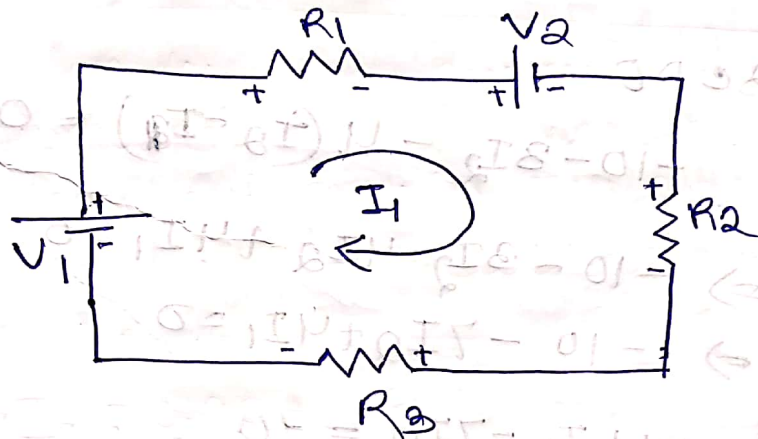 R1
V2
+ -
+ -
I1
+
-
V1
+
-
R2
- +
R3